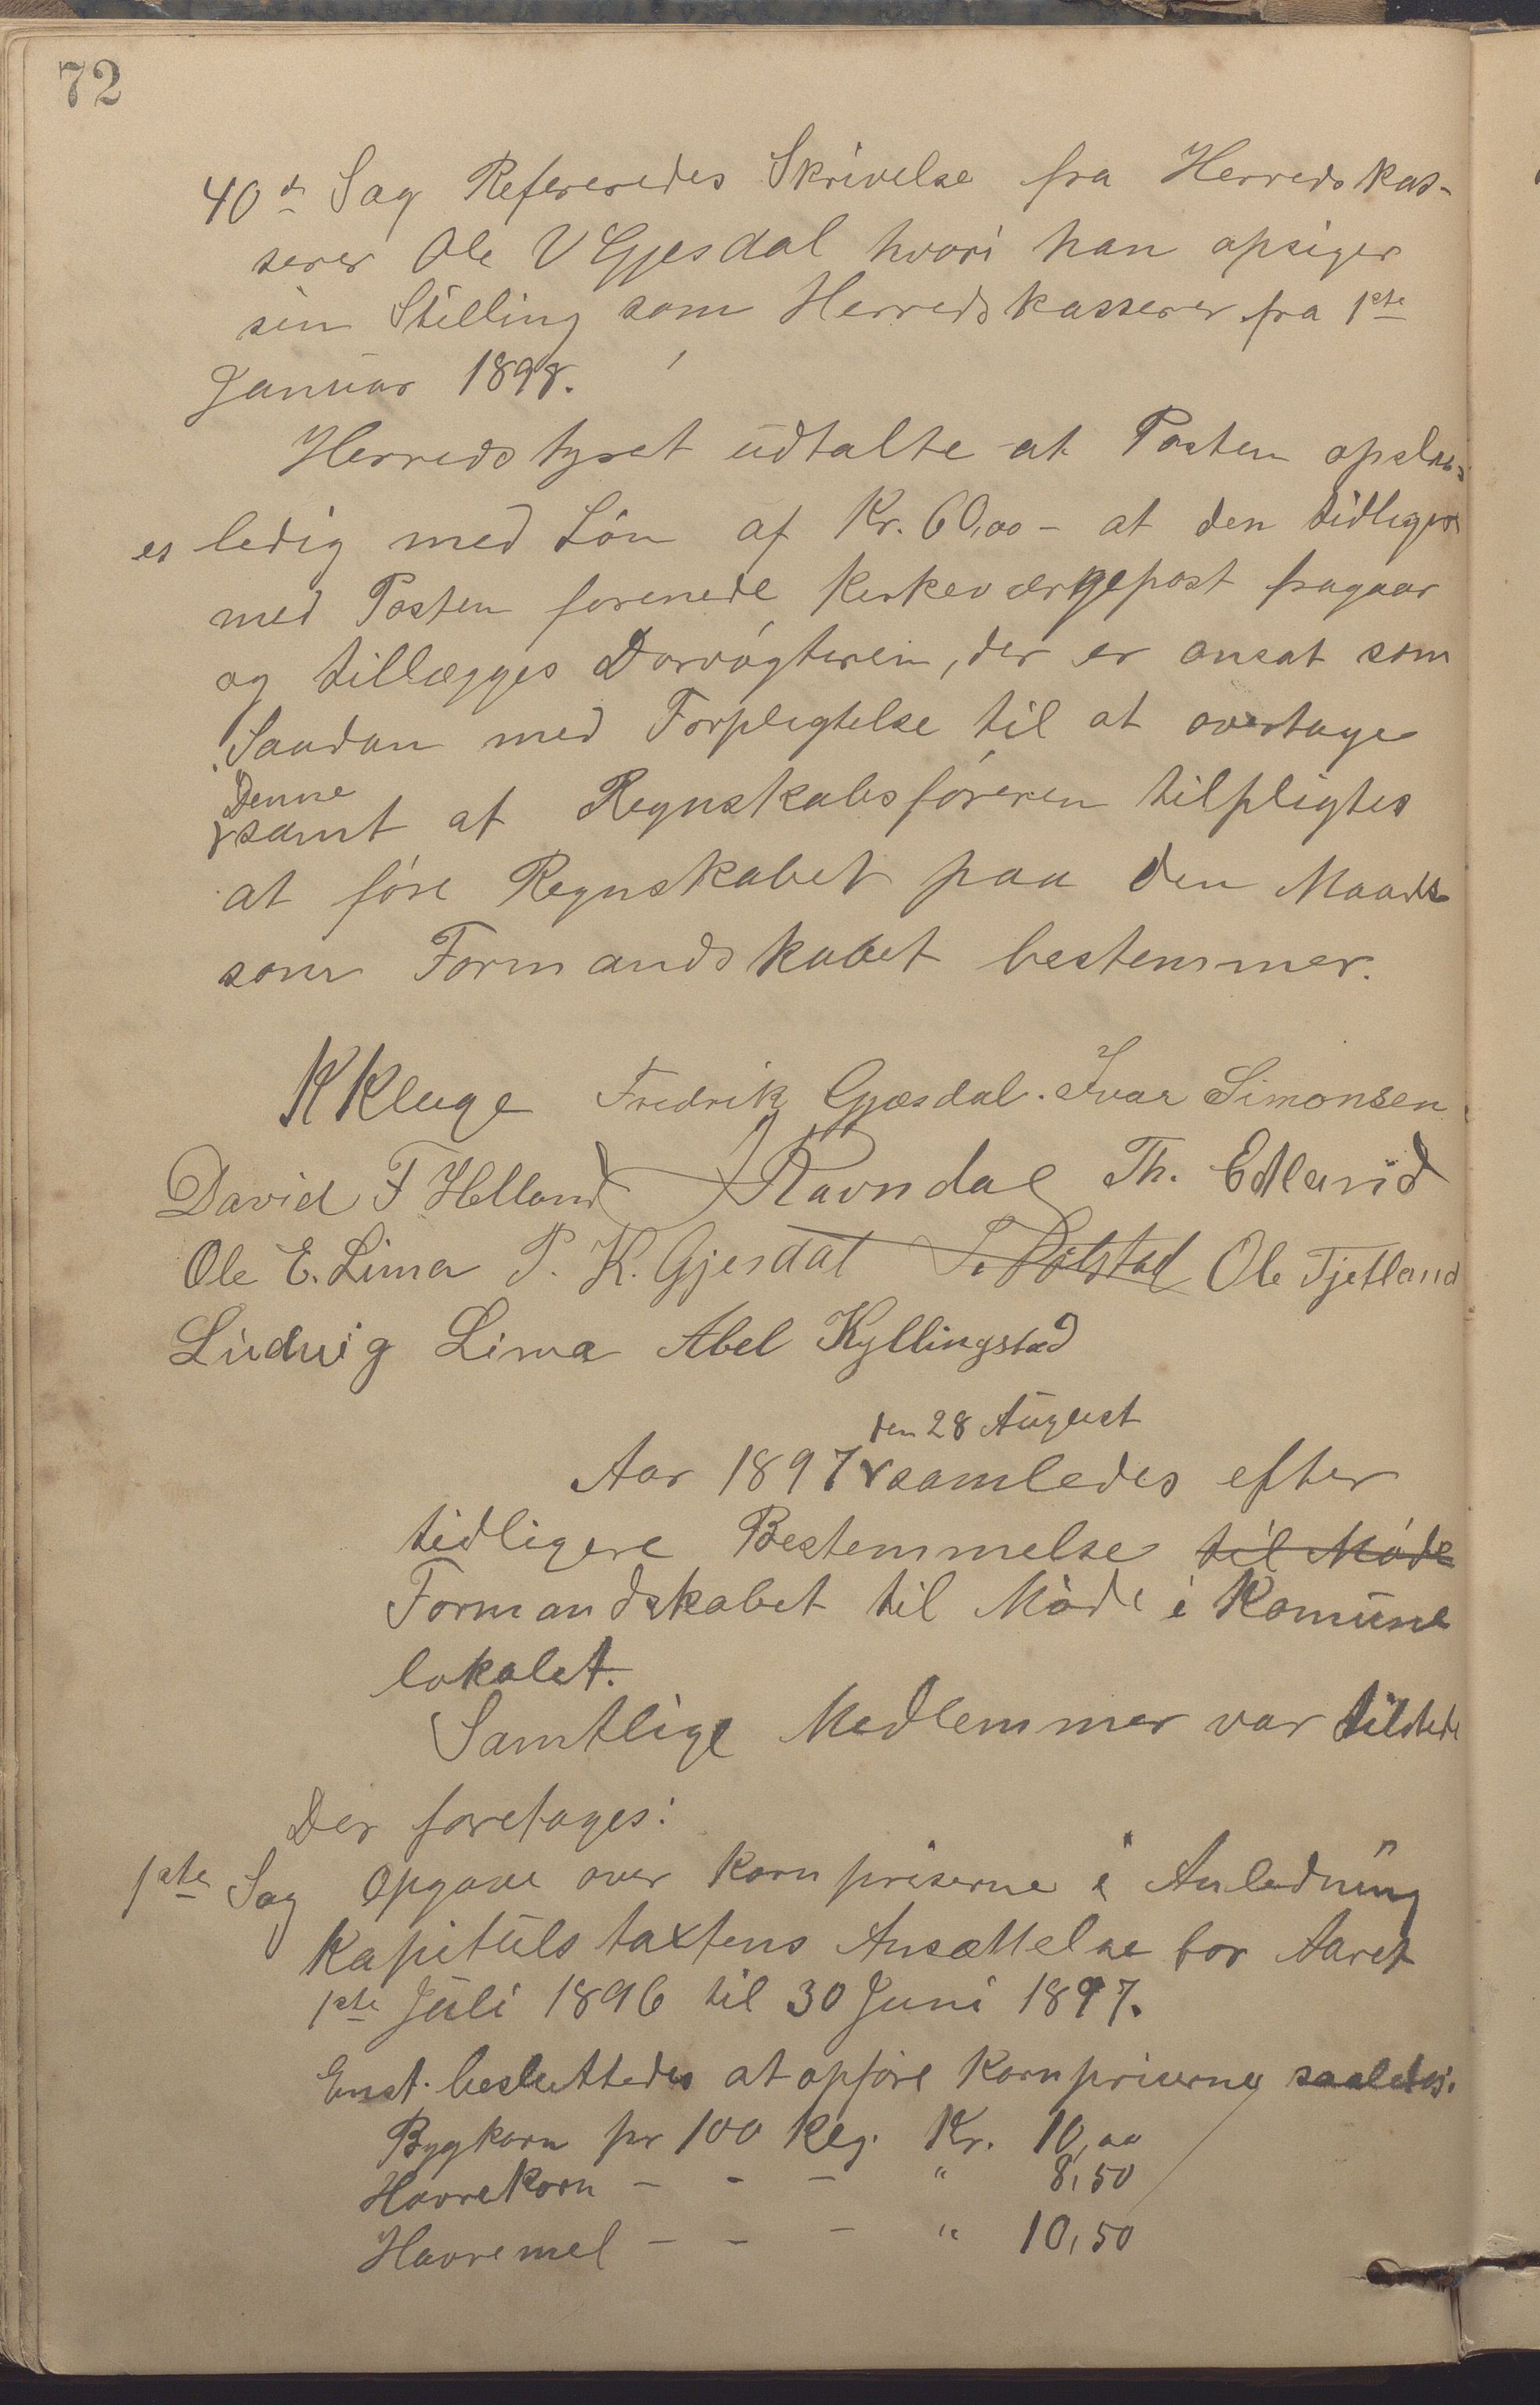 72
40d Sag Refereredes Skrivelse fra Herredskas-
serer Ole V Gjesdal hvori han opsiger
sin Stilling som Herredskasserer fra 1ste
Januar 1898.
Herredstyret udtalte at Posten opslaa-
es ledig med Løn af Kr. 60,00 - at den tidligere
med Posten forenede Kirkeværgepost fragaar
og tillægges Dorvogteren, der er ansat som
Saadan med Forpligtelse til at overtage
Denne
samt at Regnskabsføreren tilpligtes
at føre Regnskabet paa den Maade
som Formandskabet bestemmer.
K Kluge Fredrik Gjæsdal. Ivar Simonsen
David F Helland Ravndal Th. Edland
Ole E. Lima P. K. Gjesdal Ole Tjetland
Ludvig Lima Abel Kyllingstad
den 28 August
Aar 1897 samledes efter
tidligere Bestemmelse til Møde
Formandskabet til Møde i Komune
lokalet.
Samtlige Medlemmer var tilstede
Der foretages:
1ste Sag Opgave over Kornpriserne i Anledning
Kapitulstaxtens Ansættelse for Aaret
1ste Juli 1896 til 30 Juni 1897.
Enst. besluttedes at opføre Kornpriserne saaledes:
Bygkorn pr 100 Klg. Kr. 10,00
Havrekorn - - - " 8,50
Havremel - - - " 10,50